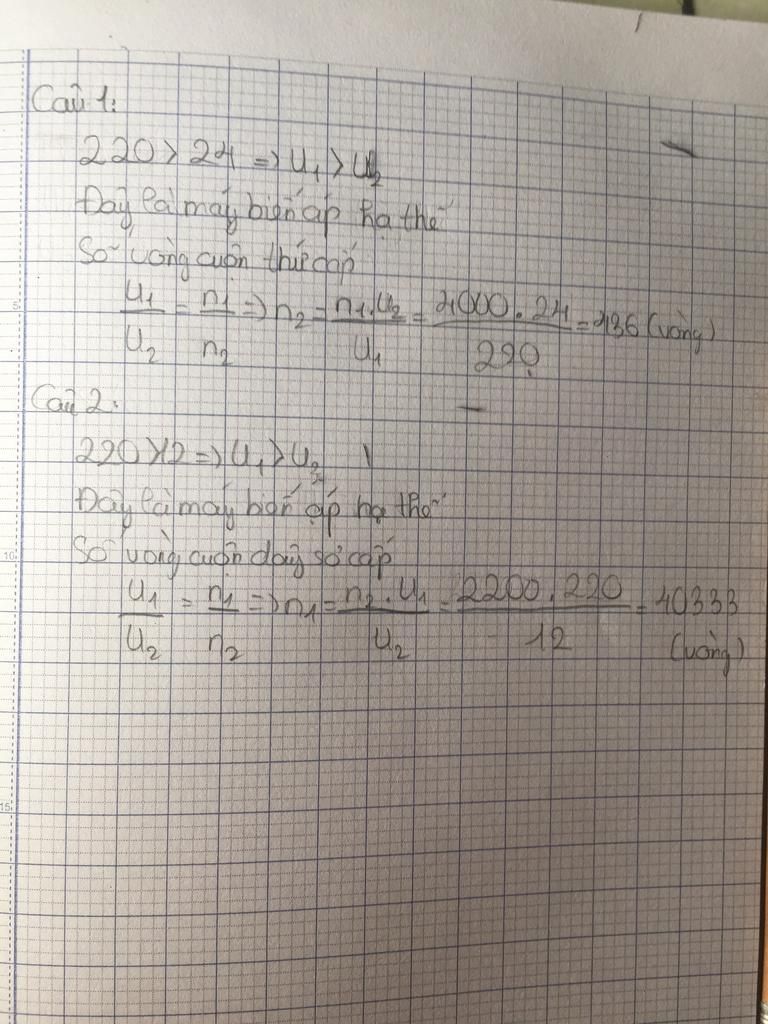 Câu 1:
220 > 24 => U₁ > U₂
Đây là máy biến áp hạ thế
Số vòng cuộn thứ cấp
U₁/U₂ = n₁/n₂ => n₂ = n₁.U₂/U₁ = 4000.24/220 = 436 (vòng)
Câu 2:
220 > 12 => U₁ > U₂
Đây là máy biến áp hạ thế
Số vòng cuộn dây sơ cấp
U₁/U₂ = n₁/n₂ => n₁ = n₂.U₁/U₂ = 2200.220/12 = 40333
(vòng)
5
10
15